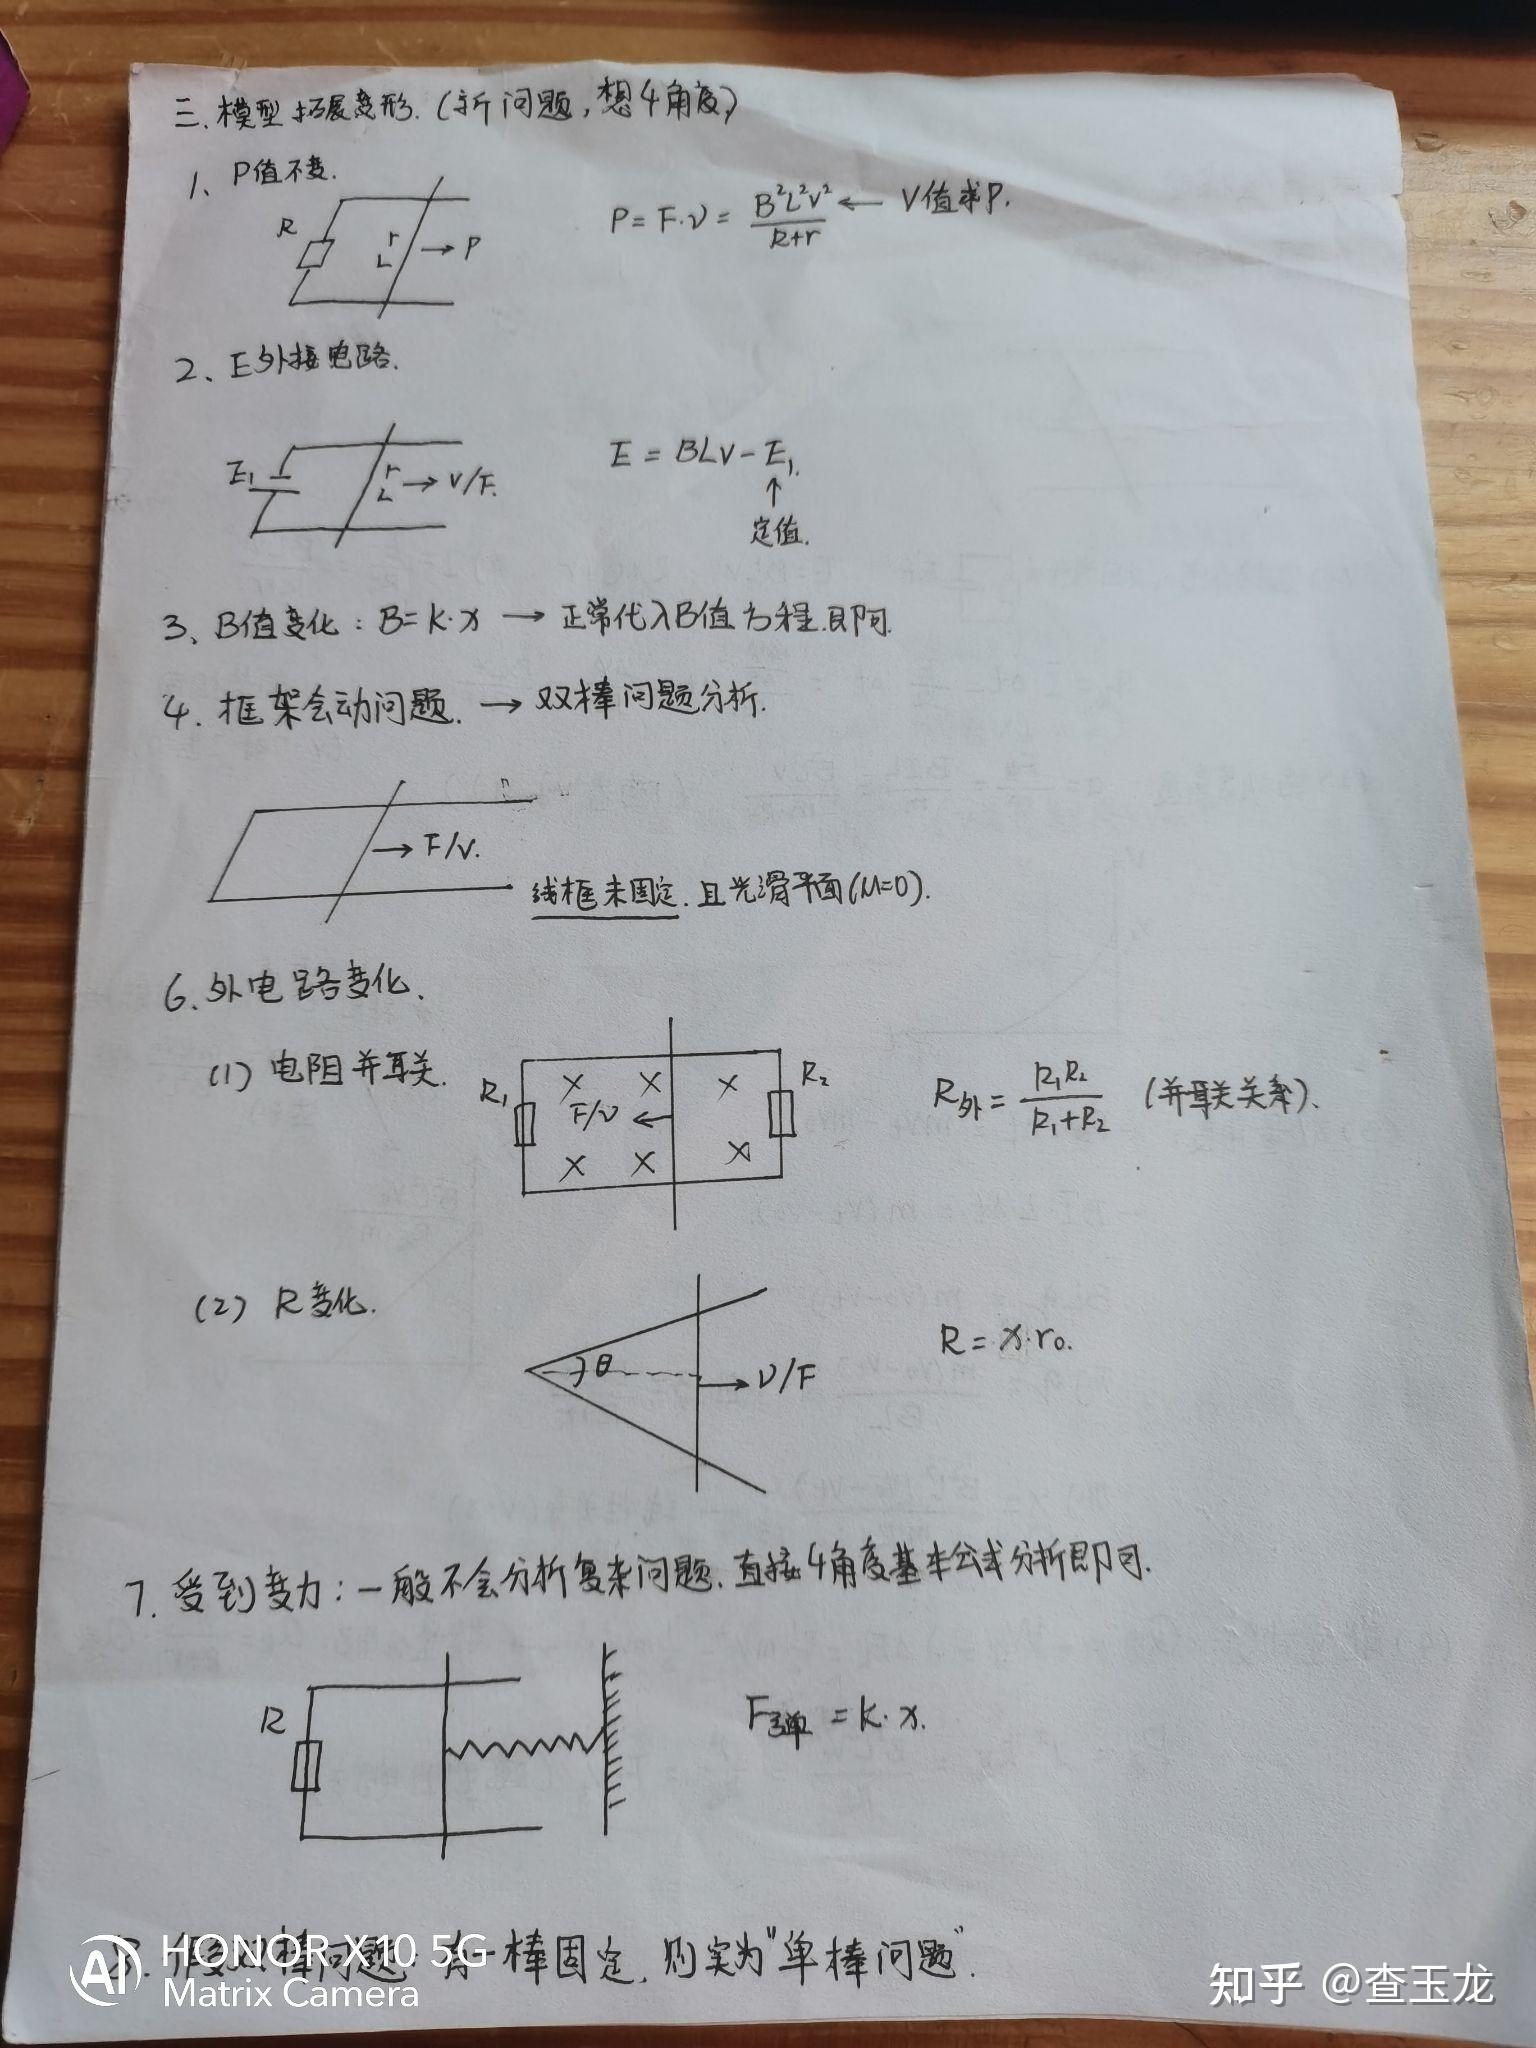 三、模型拓展变形.(新问题,想4角度)
1、P值不变.
R
r
L
P
P=F·v=B²L²v²/(R+r) ← V值求P.
2、E外接电路.
E₁
r
L
V/F.
E=BLV-E₁.
↑
定值.
3、B值变化:B=k·x → 正常代入B值方程即可.
4.框架会动问题.→双棒问题分析.
F/v.
线框未固定.且光滑平面(μ=0).
6、外电路变化.
(1)电阻并联.
R₁
R₂
F/v
R外=R₁R₂/(R₁+R₂) (并联关系).
(2) R变化.
θ
v/F
R=x·r₀.
7.受到变力:一般不会分析复杂问题.直接4角度基本公式分析即可.
R
F弹=k·x.
8.双棒问题:有一棒固定,则实为"单棒问题".
AI
HONOR X10 5G
Matrix Camera
知乎 @查玉龙